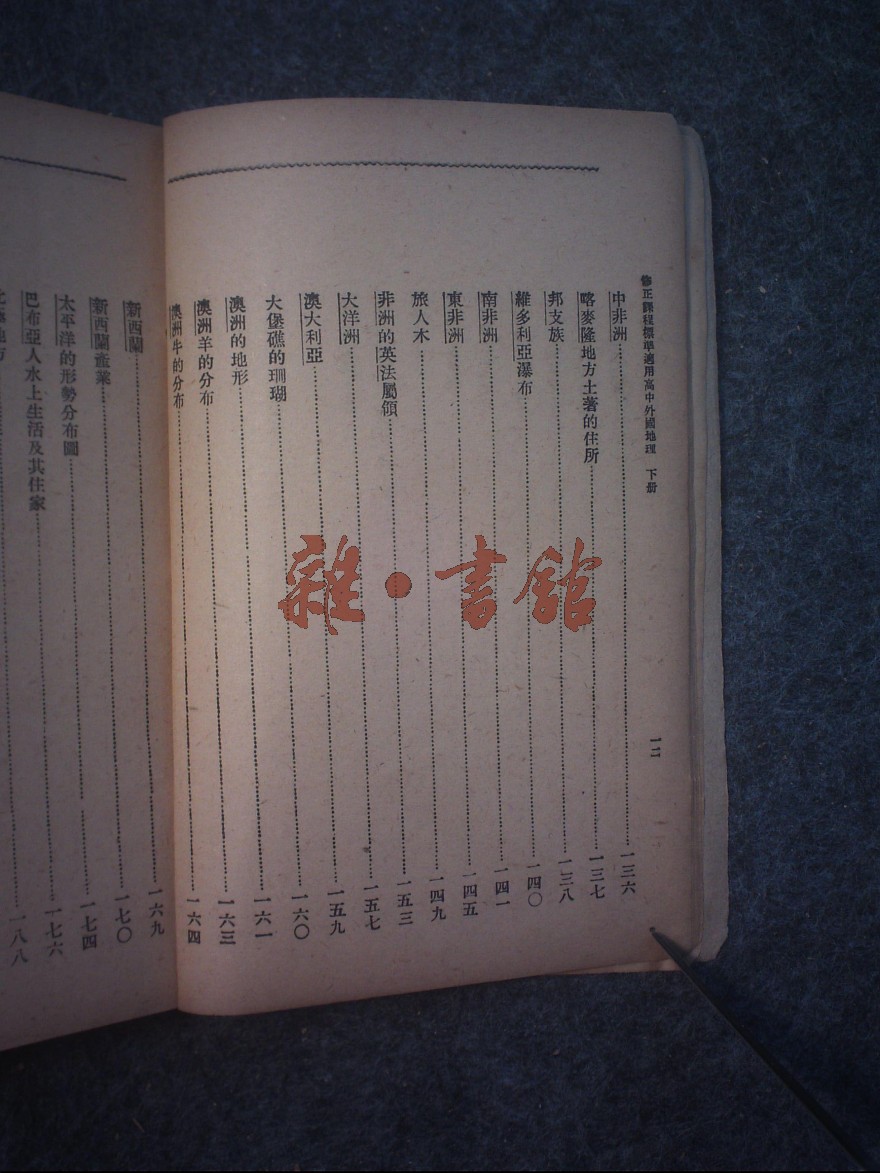 修正課程標準適用高中外國地理 下册 一二
中非洲……一三六
喀麥隆地方土著的住所……一三七
邦支族……一三八
維多利亞瀑布……一四〇
南非洲……一四一
東非洲……一四五
旅人木……一四九
非洲的英法屬領……一五三
大洋洲……一五七
澳大利亞……一五九
大堡礁的珊瑚……一六〇
澳洲的地形……一六一
澳洲羊的分布……一六三
澳洲牛的分布……一六四
新西蘭……一六九
新西蘭產業……一七〇
太平洋的形勢分布圖……一七四
巴布亞人水上生活及其住家……一七六
地方……一八八
雜·書館